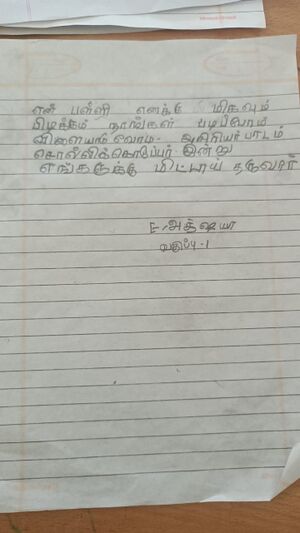 என் பள்ளி எனக்கு மிகவும்
பிடிக்கும் நாங்கள் படிபோம்
விளையாடுவோம். ஆசிரியர் பாடம்
சொல்லிக்கொடுப்பேர் இன்று
எங்களுக்கு மிட்டாய் தருவார்
E. அக்ஷயா
வகுப்பு - 1